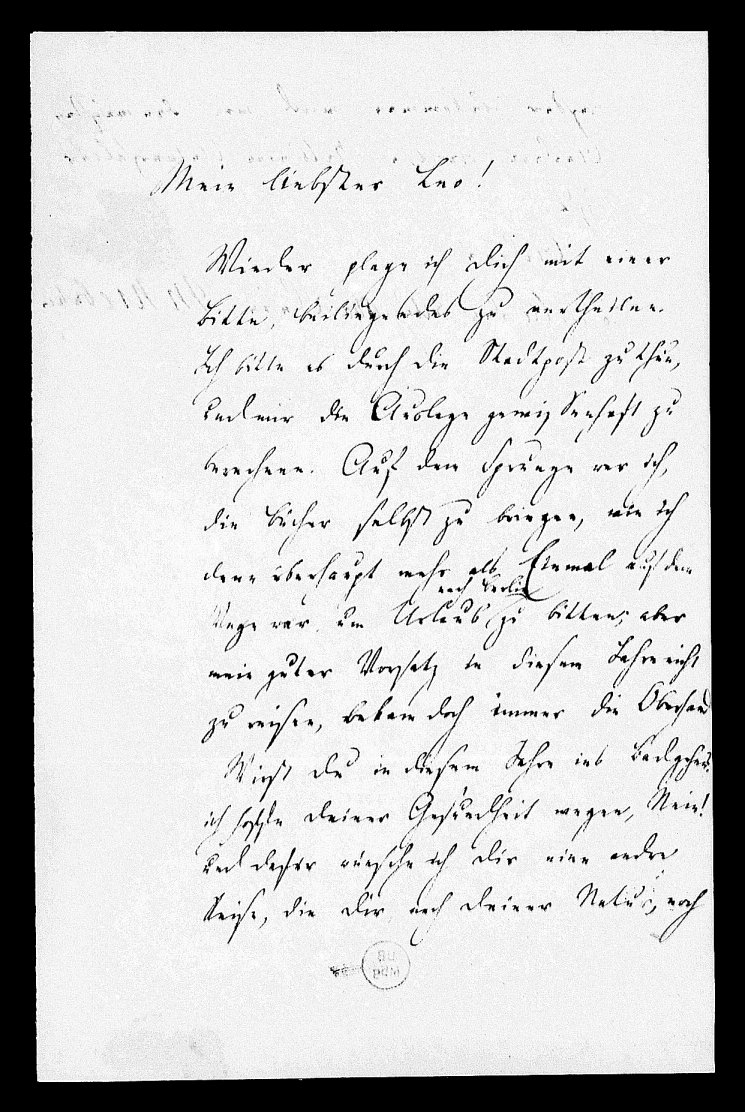 Mein liebster Leo!
Wieder plage ich Dich mit einer
Bitte, beiliegendes zu vertheilen.
Ich bitte es durch die Stadtpost zu thun,
und mir die Auslage gewissenhaft zu
berechnen. Auf dem Sprunge war ich,
die Bücher selbst zu bringen, wie ich
denn überhaupt mehr als Einmal auf dem
nach Berlin
Wege war um Urlaub zu bitten; aber
mein guter Vorsatz in diesem Jahre nicht
zu reisen, bekam doch immer die Oberhand
Wirst du in diesem Jahre ins Bad gehen?
ich hoffe deiner Gesundheit wegen, Nein!
und dafür wünsche ich dir eine andre
Reise, die dir nach deiner Natur, noch